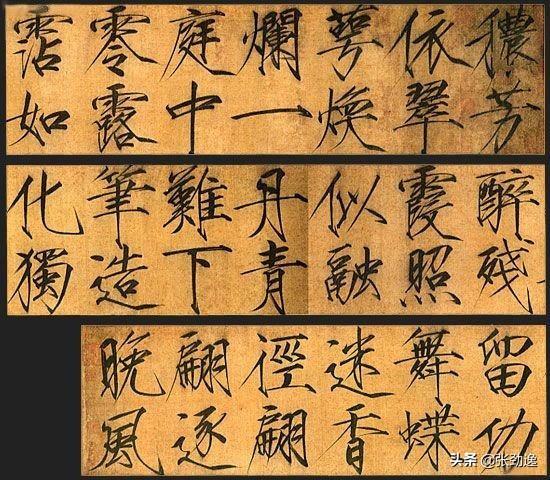 穠芳
依翠
萼煥
爛一
庭中
零露
霑如
醉殘
霞照
似融
丹青
難下
筆造
化獨
留功
舞蝶
迷香
徑翩
翩逐
晚風
头条 @张劲逸